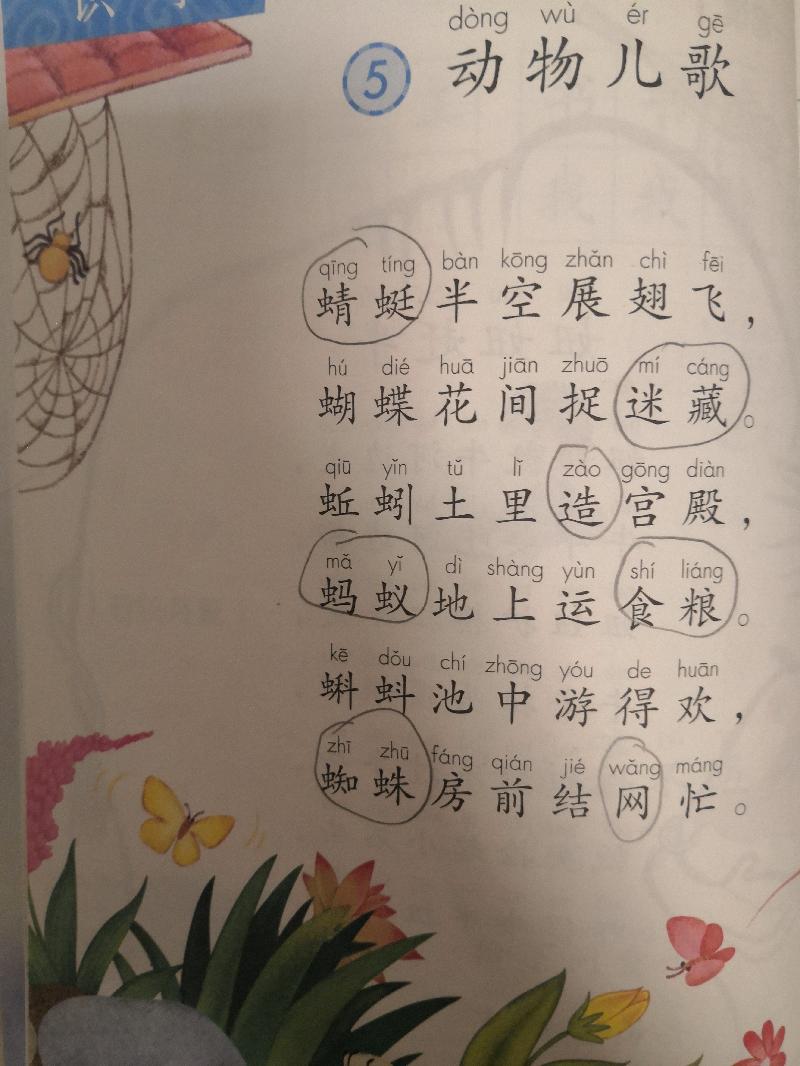 dòng wù ér gē
5 动物儿歌
qīng tíng bàn kōng zhǎn chì fēi
蜻蜓半空展翅飞，
hú dié huā jiān zhuō mí cáng
蝴蝶花间捉迷藏。
qiū yǐn tǔ lǐ zào gōng diàn
蚯蚓土里造宫殿，
mǎ yǐ dì shàng yùn shí liáng
蚂蚁地上运食粮。
kē dǒu chí zhōng yóu de huān
蝌蚪池中游得欢，
zhī zhū fáng qián jié wǎng máng
蜘蛛房前结网忙。